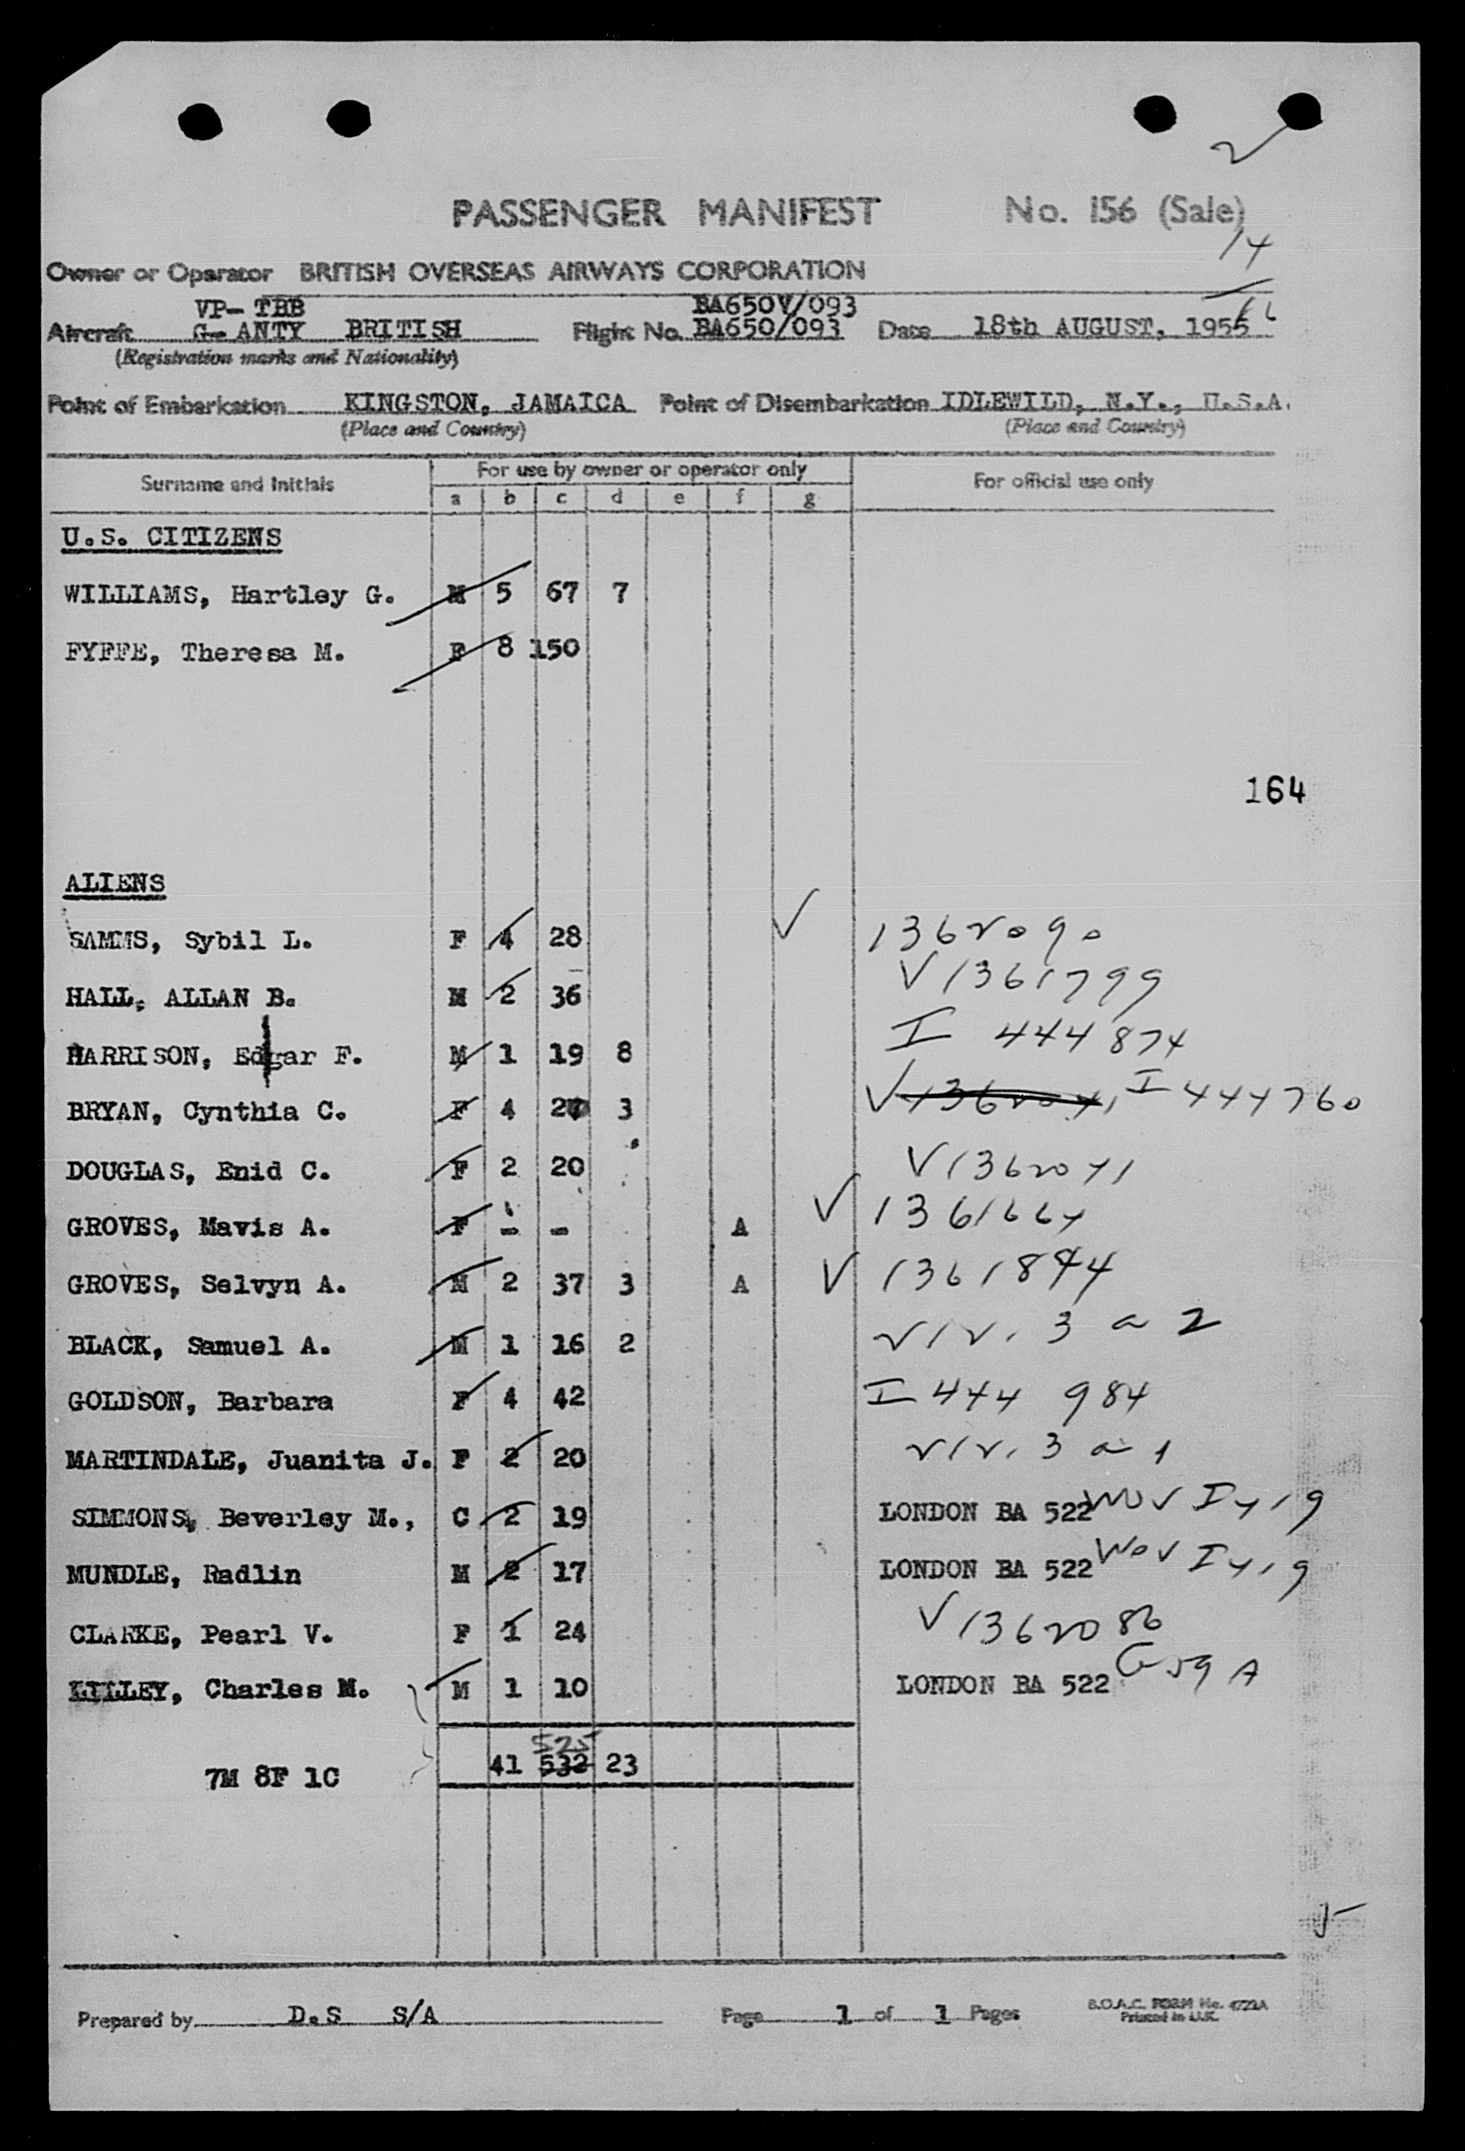 PASSENGER MANIFEST No. 156 (Sale)
14
Owner or Operator BRITISH OVERSEAS AIRWAYS CORPORATION
VP- TBB BA650V/093
Aircraft G- ANTY BRITISH Flight No. BA650/093 Date 18th AUGUST, 1955
(Registration marks and Nationality)
Point of Embarkation KINGSTON, JAMAICA Point of Disembarkation IDLEWILD, N.Y., U.S.A.
(Place and Country) (Place and Country)
Surname and Initials For use by owner or operator only For official use only
a b c d e f g
U.S. CITIZENS
WILLIAMS, Hartley G. M 5 67 7
FYFFE, Theresa M. F 8 150
164
ALIENS
SAMMS, Sybil L. F 4 28 1362090
HALL, ALLAN B. M 2 36 V1361799
HARRISON, Edgar F. M 1 19 8 I 444874
BRYAN, Cynthia C. F 4 27 3 I 444760
DOUGLAS, Enid C. F 2 20 V1362041
GROVES, Mavis A. F - - A V 1361664
GROVES, Selvyn A. M 2 37 3 A V 1361844
BLACK, Samuel A. M 1 16 2 212.3 a 2
GOLDSON, Barbara F 4 42 I 444 984
MARTINDALE, Juanita J. F 2 20 212.3 a 1
SIMMONS, Beverley M., C 2 19 LONDON BA 522
MUNDLE, Radlin M 2 17 LONDON BA 522
CLARKE, Pearl V. F 1 24 V1362086
LILLEY, Charles M. M 1 10 LONDON BA 522
525
7M 8F 1C 41 532 23
Prepared by D.S S/A Page 1 of 1 Pages B.O.A.C. FORM No. 4722A
Printed in U.K.